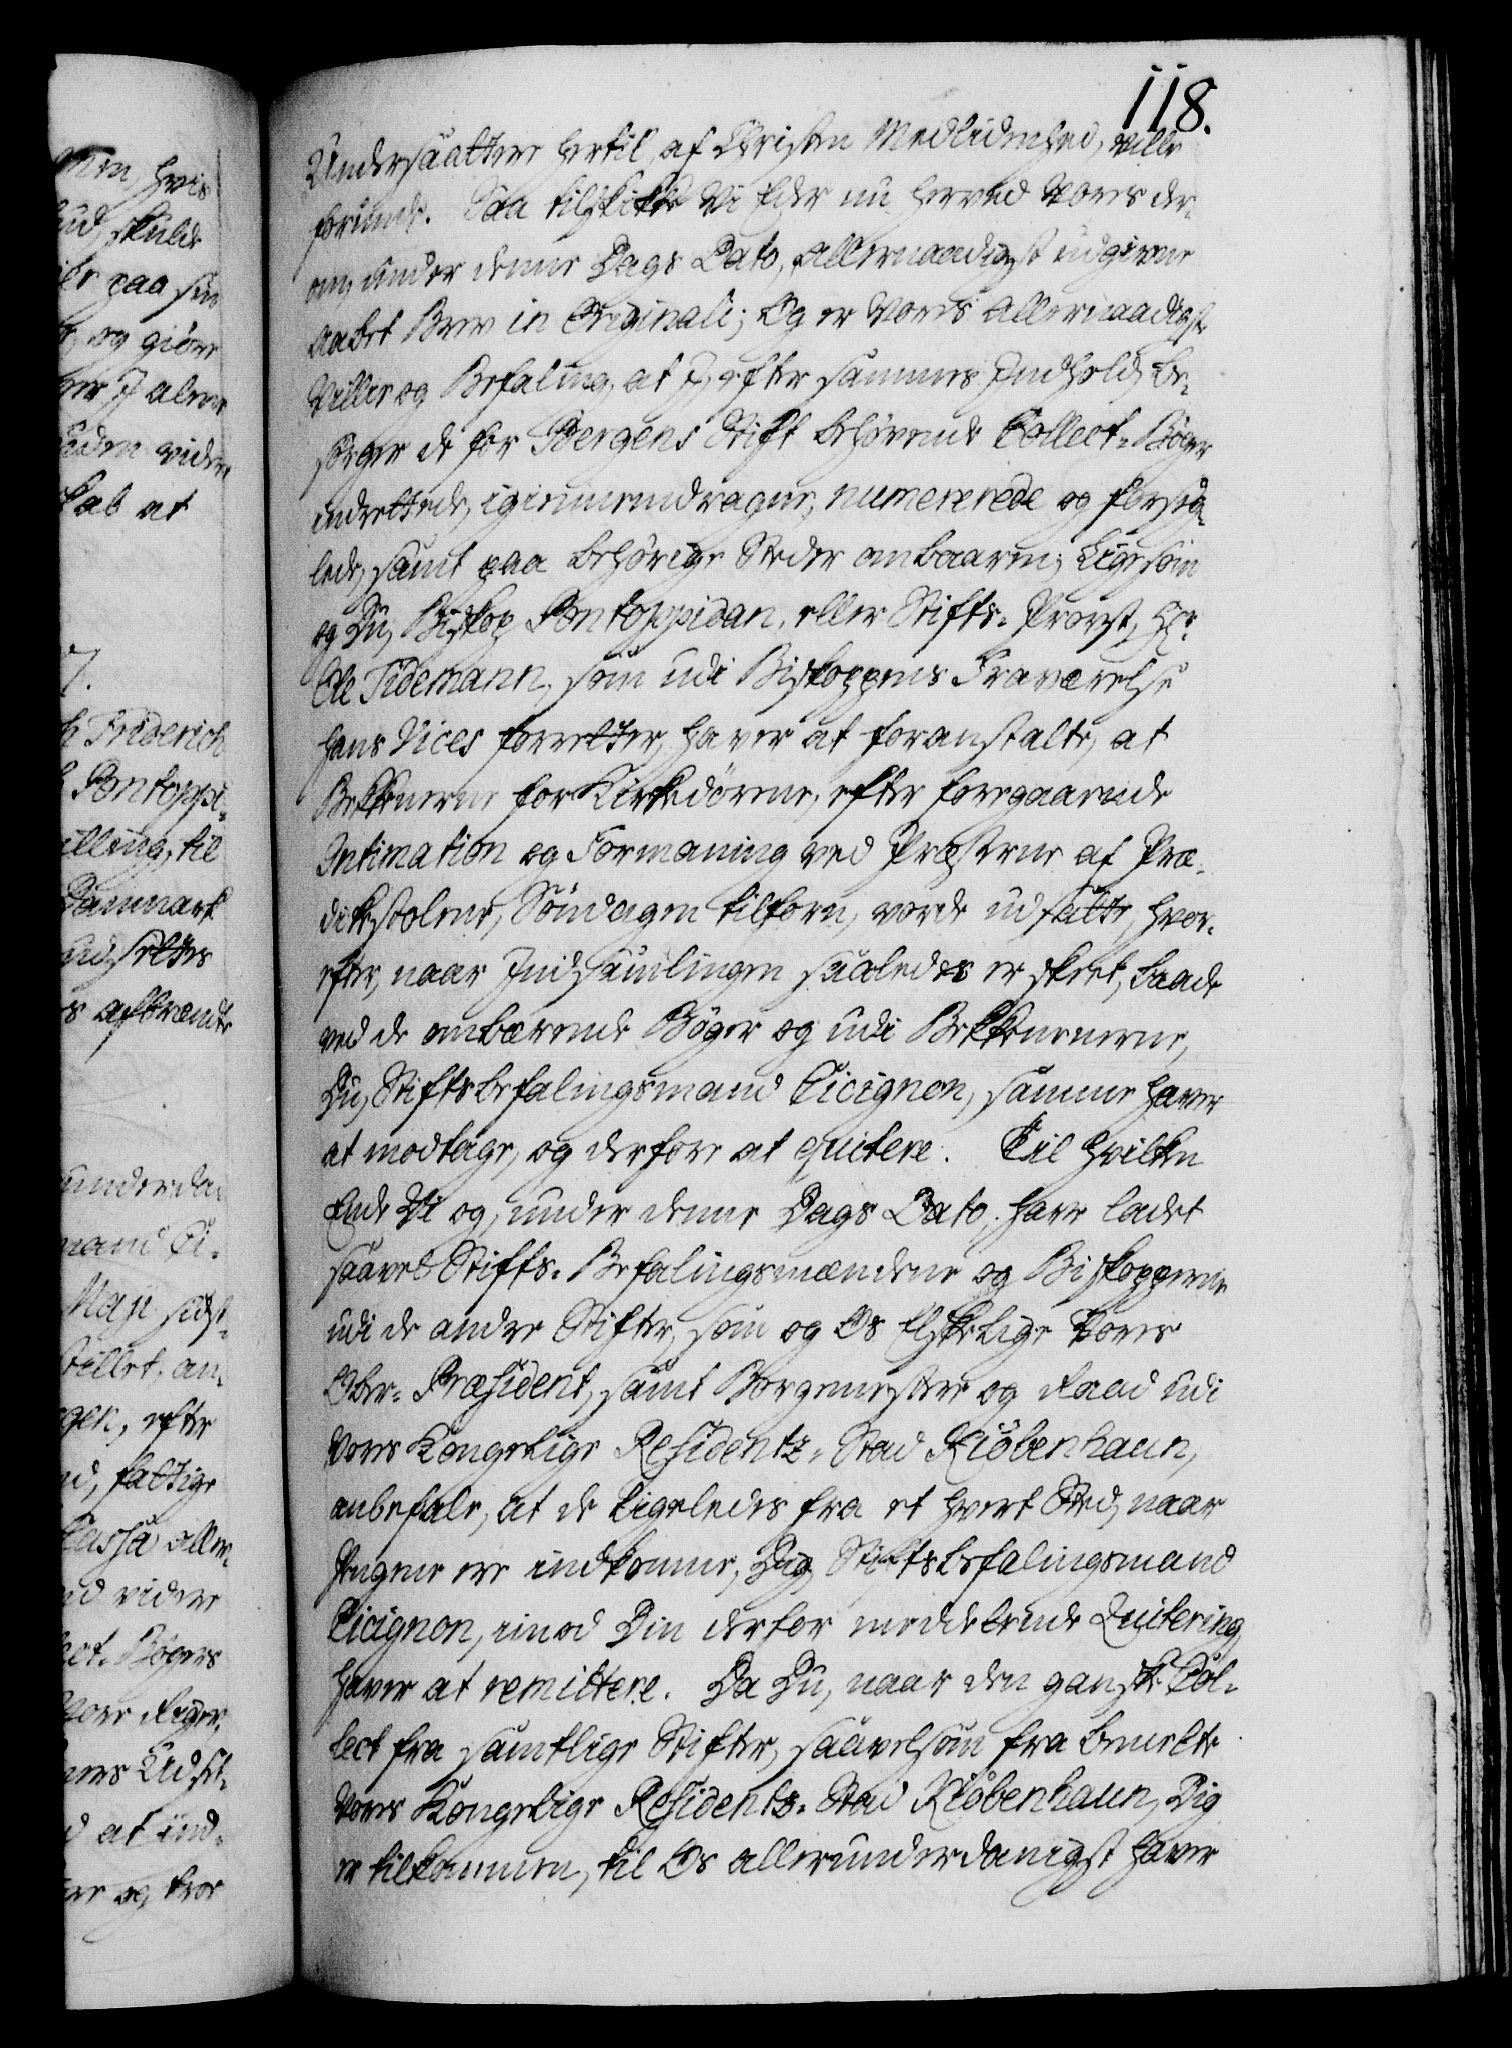 118.
Undersaattere hertil, af Christen Medlidenhed, ville
forunde. Saa tilskikke Vi Eder nu herved Vores der-
om, under denne Dags Dato, allernaadigst udgivne
aabet Brev in Originali; Og er Vores allernaadigste
Villie og Befaling, at I, efter sammes Indhold, be-
sørger de for Bergens Stift behøvende Collect-Bøger
indrettede, igiennemdragne, numererede og forseig-
lede, samt paa behørige Steder ombaaren; Ligesom
og Du, Biskop Pontoppidan, eller Stifts-Provst, Hr.
Ole Tidemann, som udi Biskoppens Fraværelse
hans Vices forretter, haver at foranstalte, at
Bekkenerne for Kirkedørene, efter foregaaende
Intimation og Formaning ved Præsterne af Præ-
dikestolene, Søndagen tilforn, vorde udsatte, hvor-
efter, naar Indsamlingen saaledes er skeet, baade
ved de ombærende Bøger og udi Bekkenerne,
Du, Stiftsbefalingsmand Cicignon, samme haver
at modtage, og derfore at quitere. Til hvilken
Ende Vi og, under denne Dags Dato, have ladet
saavel Stifts-Befalingsmændene og Biskopperne
udi de andre Stifter, som og Os Elskelige Vores
Ober-Præsident, samt Borgemester og Raad udi
Vores Kongelige Residentz-Stad Kiøbenhaun,
anbefale, at de ligeledes fra et hvert Sted, naar
Pengene ere indkomne, Dig, Stiftsbefalingsmand
Cicignon, imod Din derfor meddelende Quitering,
haver at remittere. Da Du, naar den gandske Col-
lect fra samtlige Stifter, saavelsom fra bemelte
Vores Kongelige Residentz-Stad Kiøbenhaun, Dig
er tilkommen, til Os allerunderdanigst haver